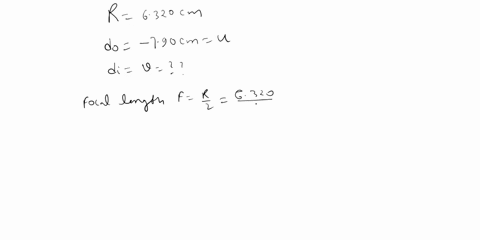 R = 6.320 cm
do = -7.90 cm = u
di = v = ??
Focal length F = R/2 = 6.320/